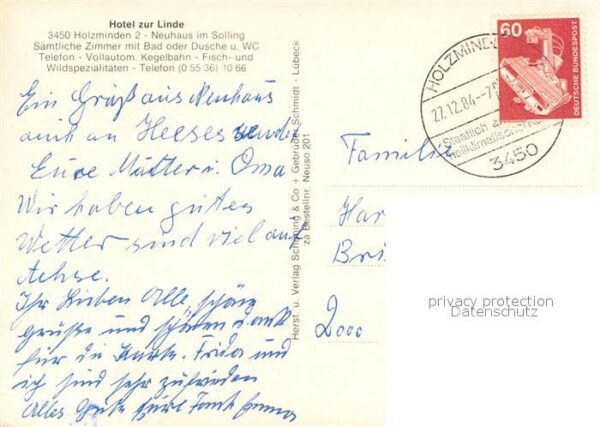 Hotel zur Linde
3450 Holzminden 2 - Neuhaus im Solling
Sämtliche Zimmer mit Bad oder Dusche u. WC
Telefon - Vollautom. Kegelbahn - Fisch- und
Wildspezialitäten - Telefon (0 55 36) 10 66
Ein Gruß aus Neuhaus
auch an Heeses
Eure Mutter u. Oma
Wir haben gutes
Wetter sind viel auf
Achse.
Ihr Lieben Alle, schöne
Grüße und schönen Dank
für die Karte. Frida und
ich sind sehr zufrieden
Alles Gute Eure Tante
Herst. u. Verlag Schöning & Co + Gebrüder Schmidt - Lübeck
zä Bestellnr. Neuso 201
HOLZMIND
27.12.84-7
Staatlich a
heilklimatischer K
3450
60
DEUTSCHE BUNDESPOST
Familie
Har
Bri
2000
privacy protection
Datenschutz